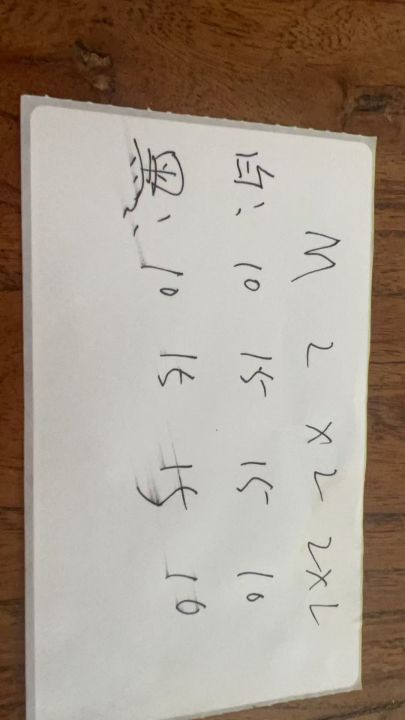 M L XL 2XL
白: 10 15 15 10
黑: 10 15 15 10